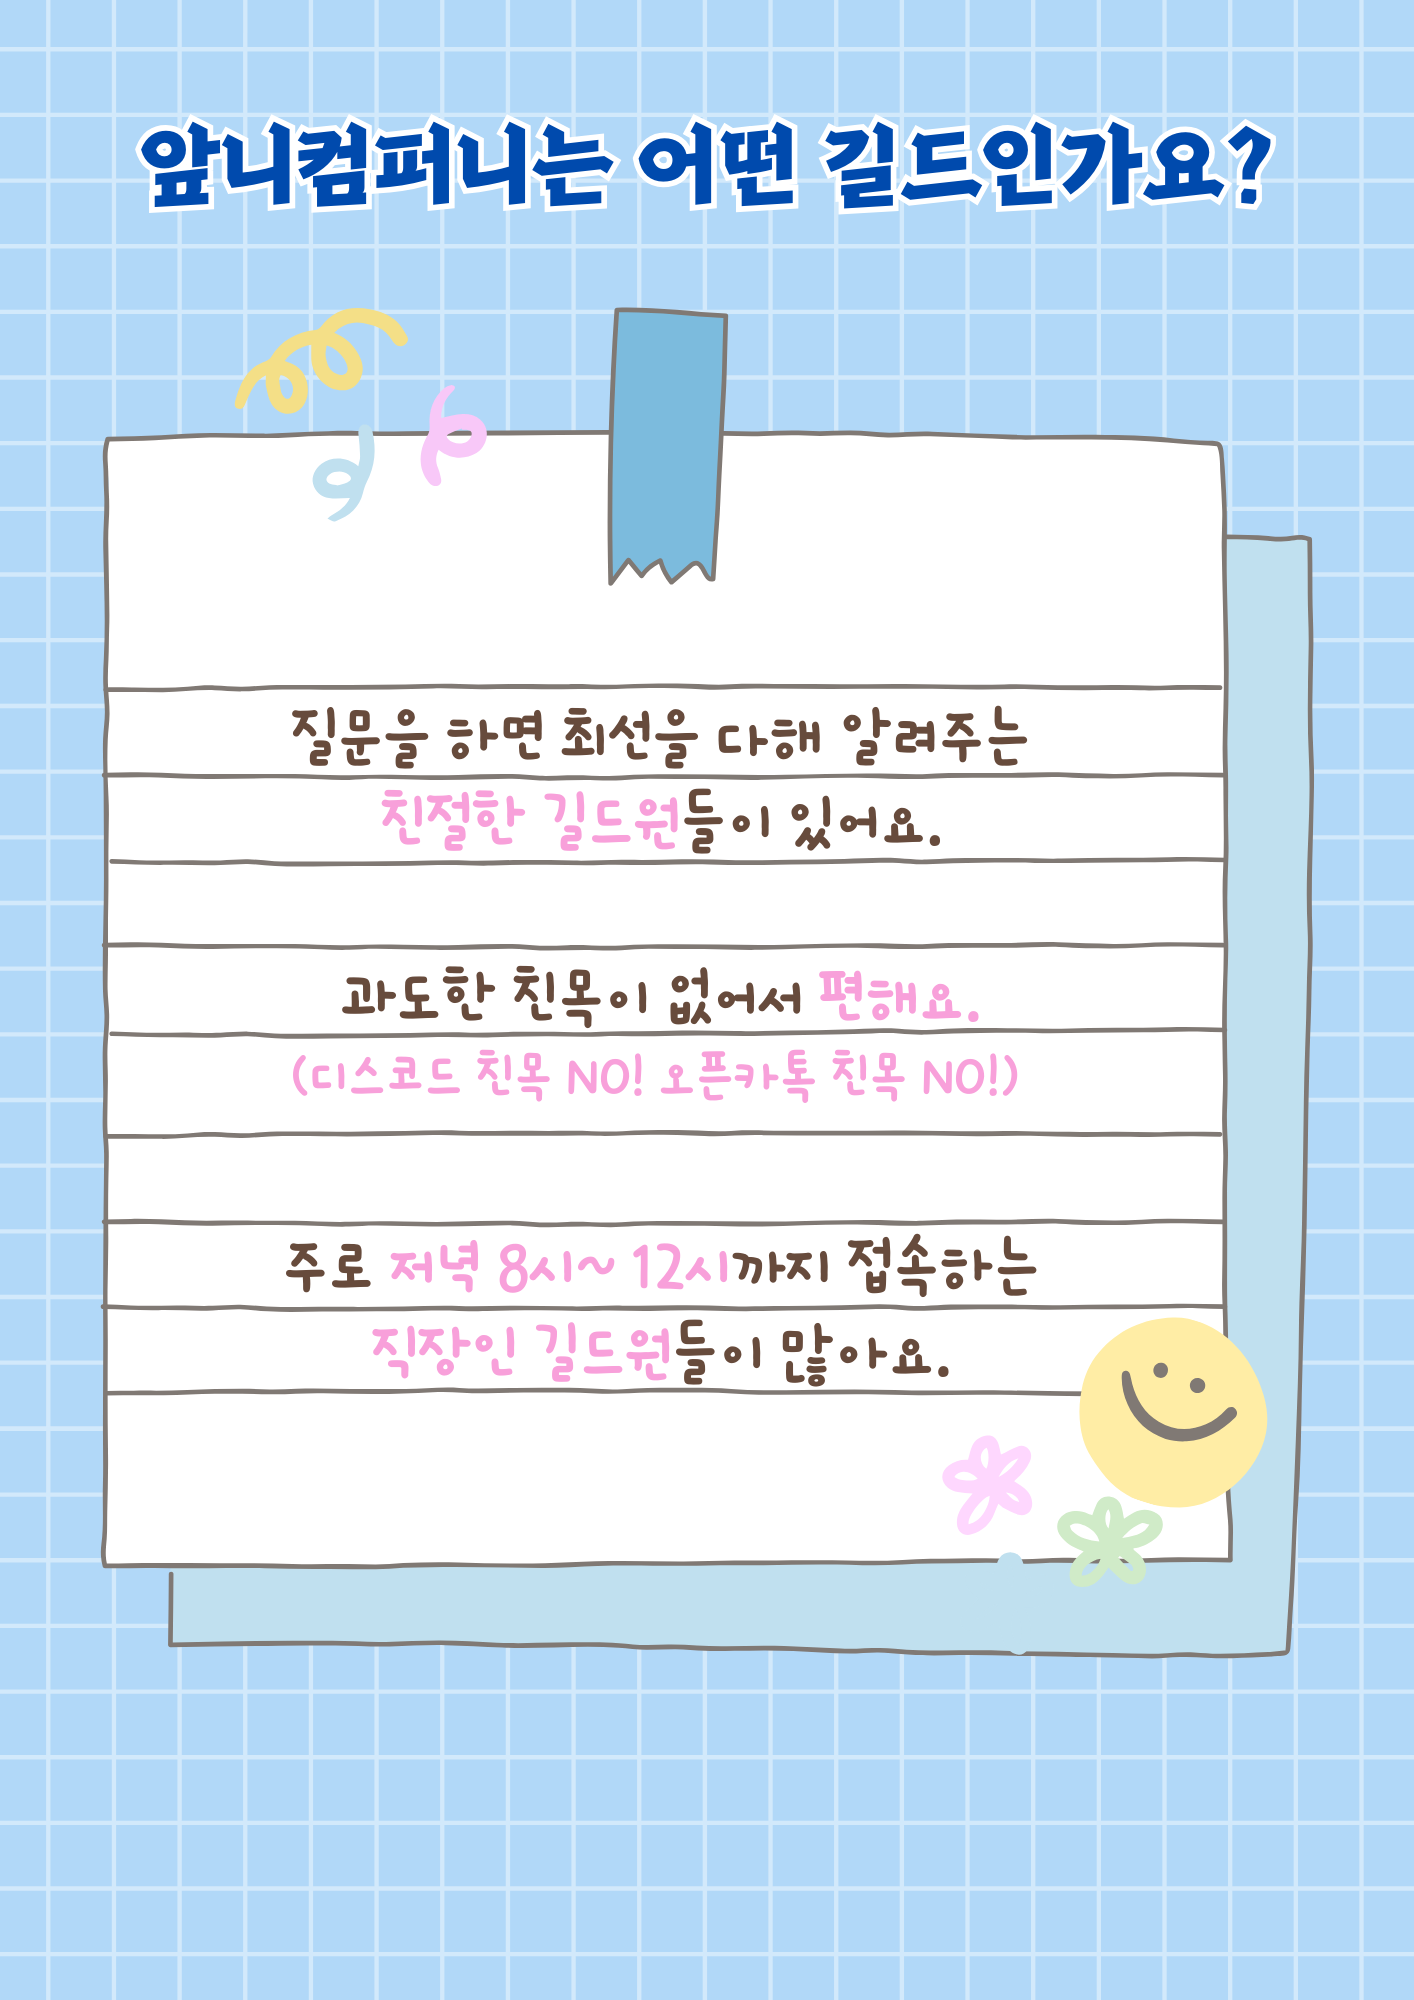 앞니컴퍼니는 어떤 길드인가요?
질문을 하면 최선을 다해 알려주는
친절한 길드원들이 있어요.
과도한 친목이 없어서 편해요.
(디스코드 친목 NO! 오픈카톡 친목 NO!)
주로 저녁 8시~ 12시까지 접속하는
직장인 길드원들이 많아요.